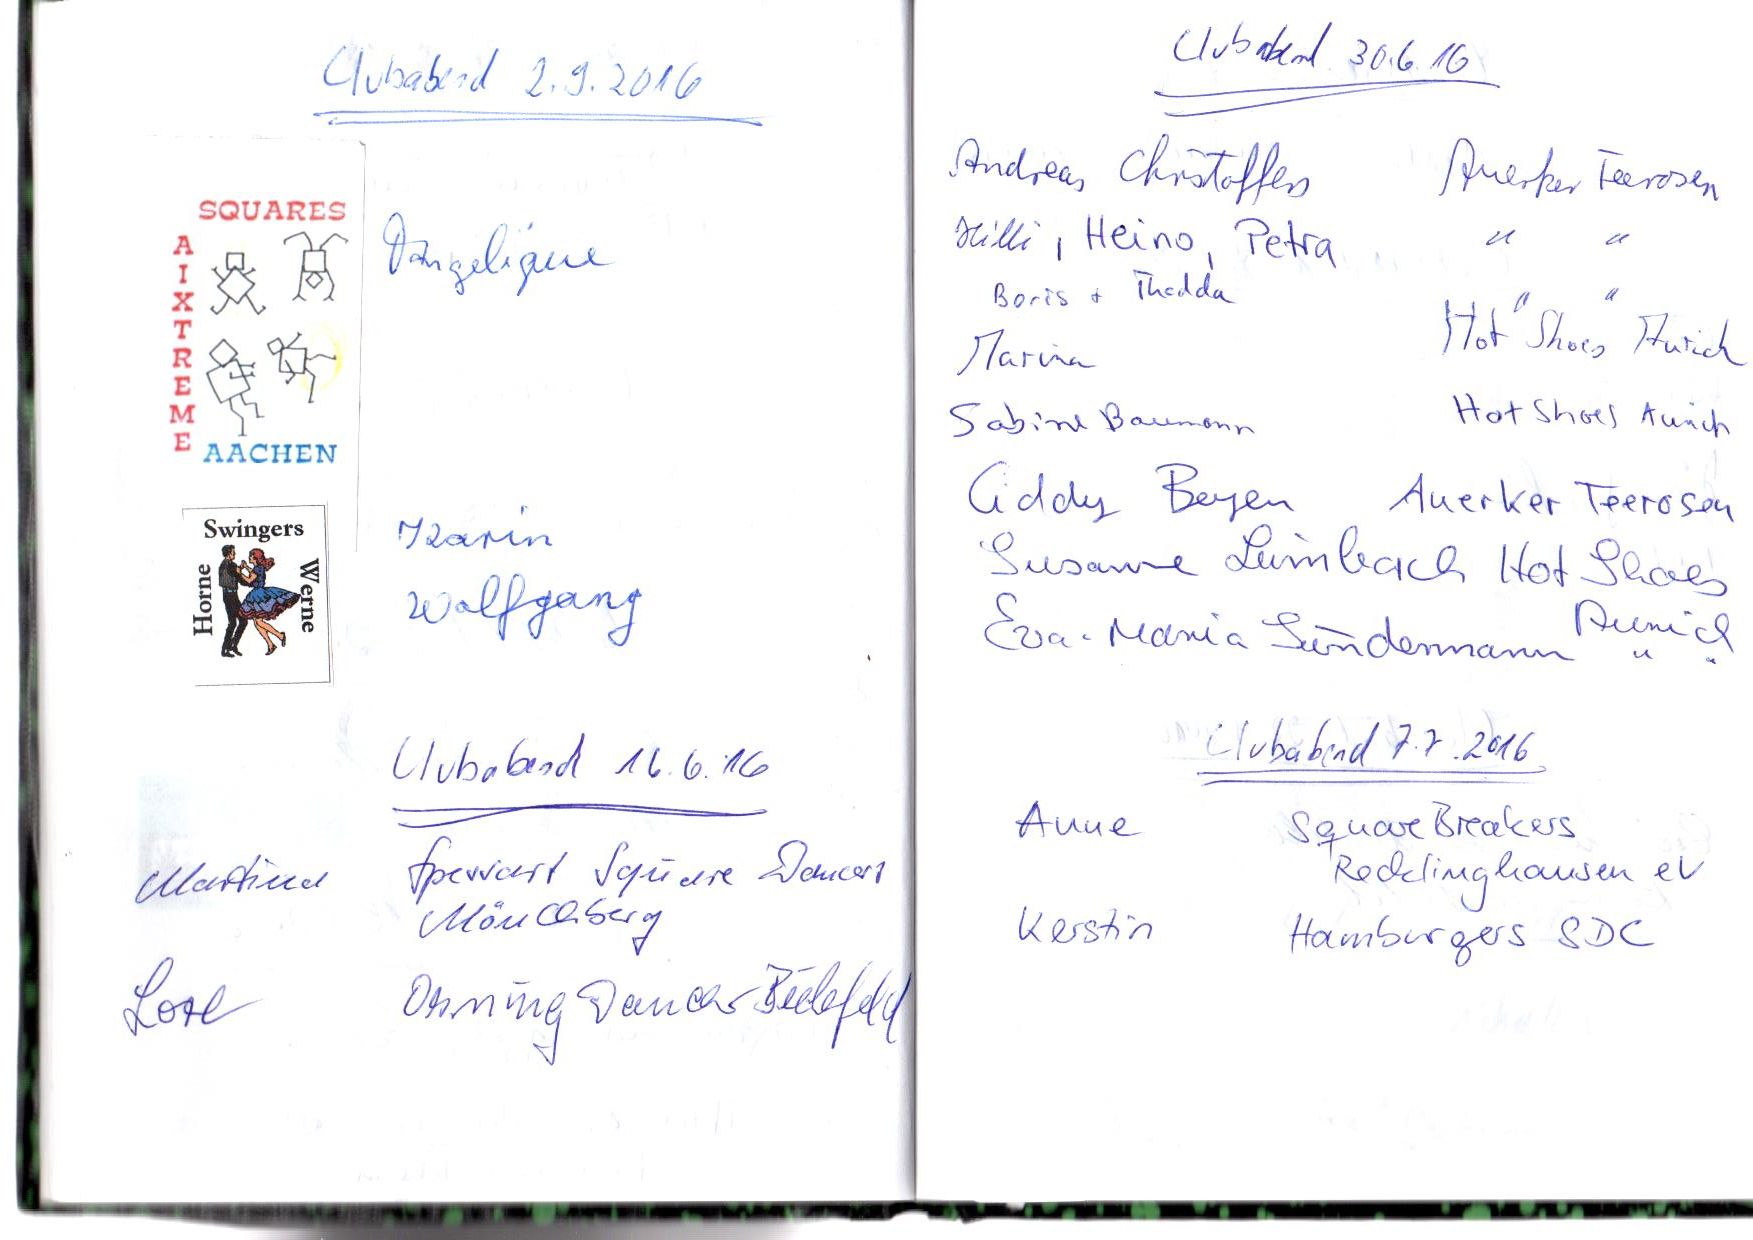 Clubabend 2.9.2016
SQUARES
AIXTREME
AACHEN
Angelique
Swingers
Horne
Werne
Karin
Wolfgang
Clubabend 16.6.16
Martina Spessart Square Dancers
Mönchberg
Lore Dancer Bielefeld
Clubabend 30.6.16
Andreas Christoffers Auerker Teerosen
Hilli, Heino, Petra " "
Boris + Thedda " "
Marina Hot Shoes Aurich
Sabine Baumann Hot Shoes Aurich
Beyen Auerker Teerosen
Susanne Leimbach Hot Shoes
Aurich
Eva-Maria Sündermann " "
Clubabend 7.7.2016
Anne Square Breakers
Recklinghausen eV
Kerstin Hamburgers SDC